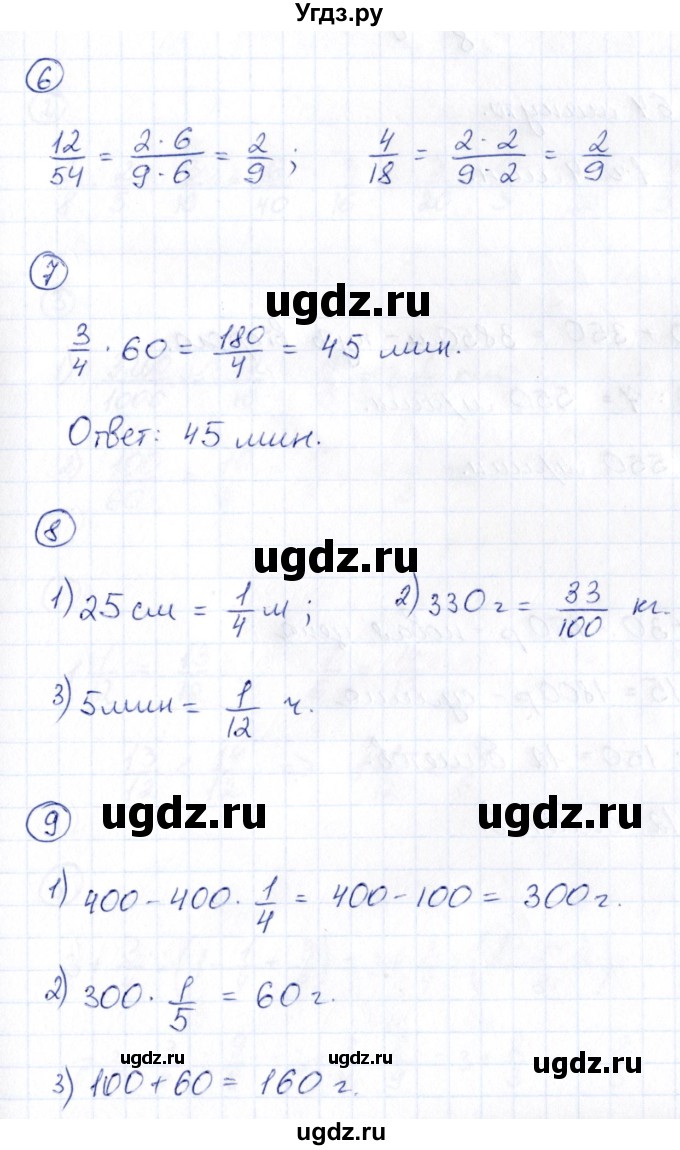 Угдз.ру
6
12/54 = 2·6/9·6 = 2/9 ; 4/18 = 2·2/9·2 = 2/9
7
ugdz.ru
3/4 · 60 = 180/4 = 45 мин.
Ответ: 45 мин.
8
ugdz.ru
1) 25 см = 1/4 м ; 2) 330 г = 33/100 кг.
3) 5 мин = 1/12 ч.
9
ugdz.ru ugdz.ru
1) 400 - 400 · 1/4 = 400 - 100 = 300 г.
2) 300 · 1/5 = 60 г.
ugdz.ru ugdz.ru
3) 100 + 60 = 160 г.
ugdz.ru